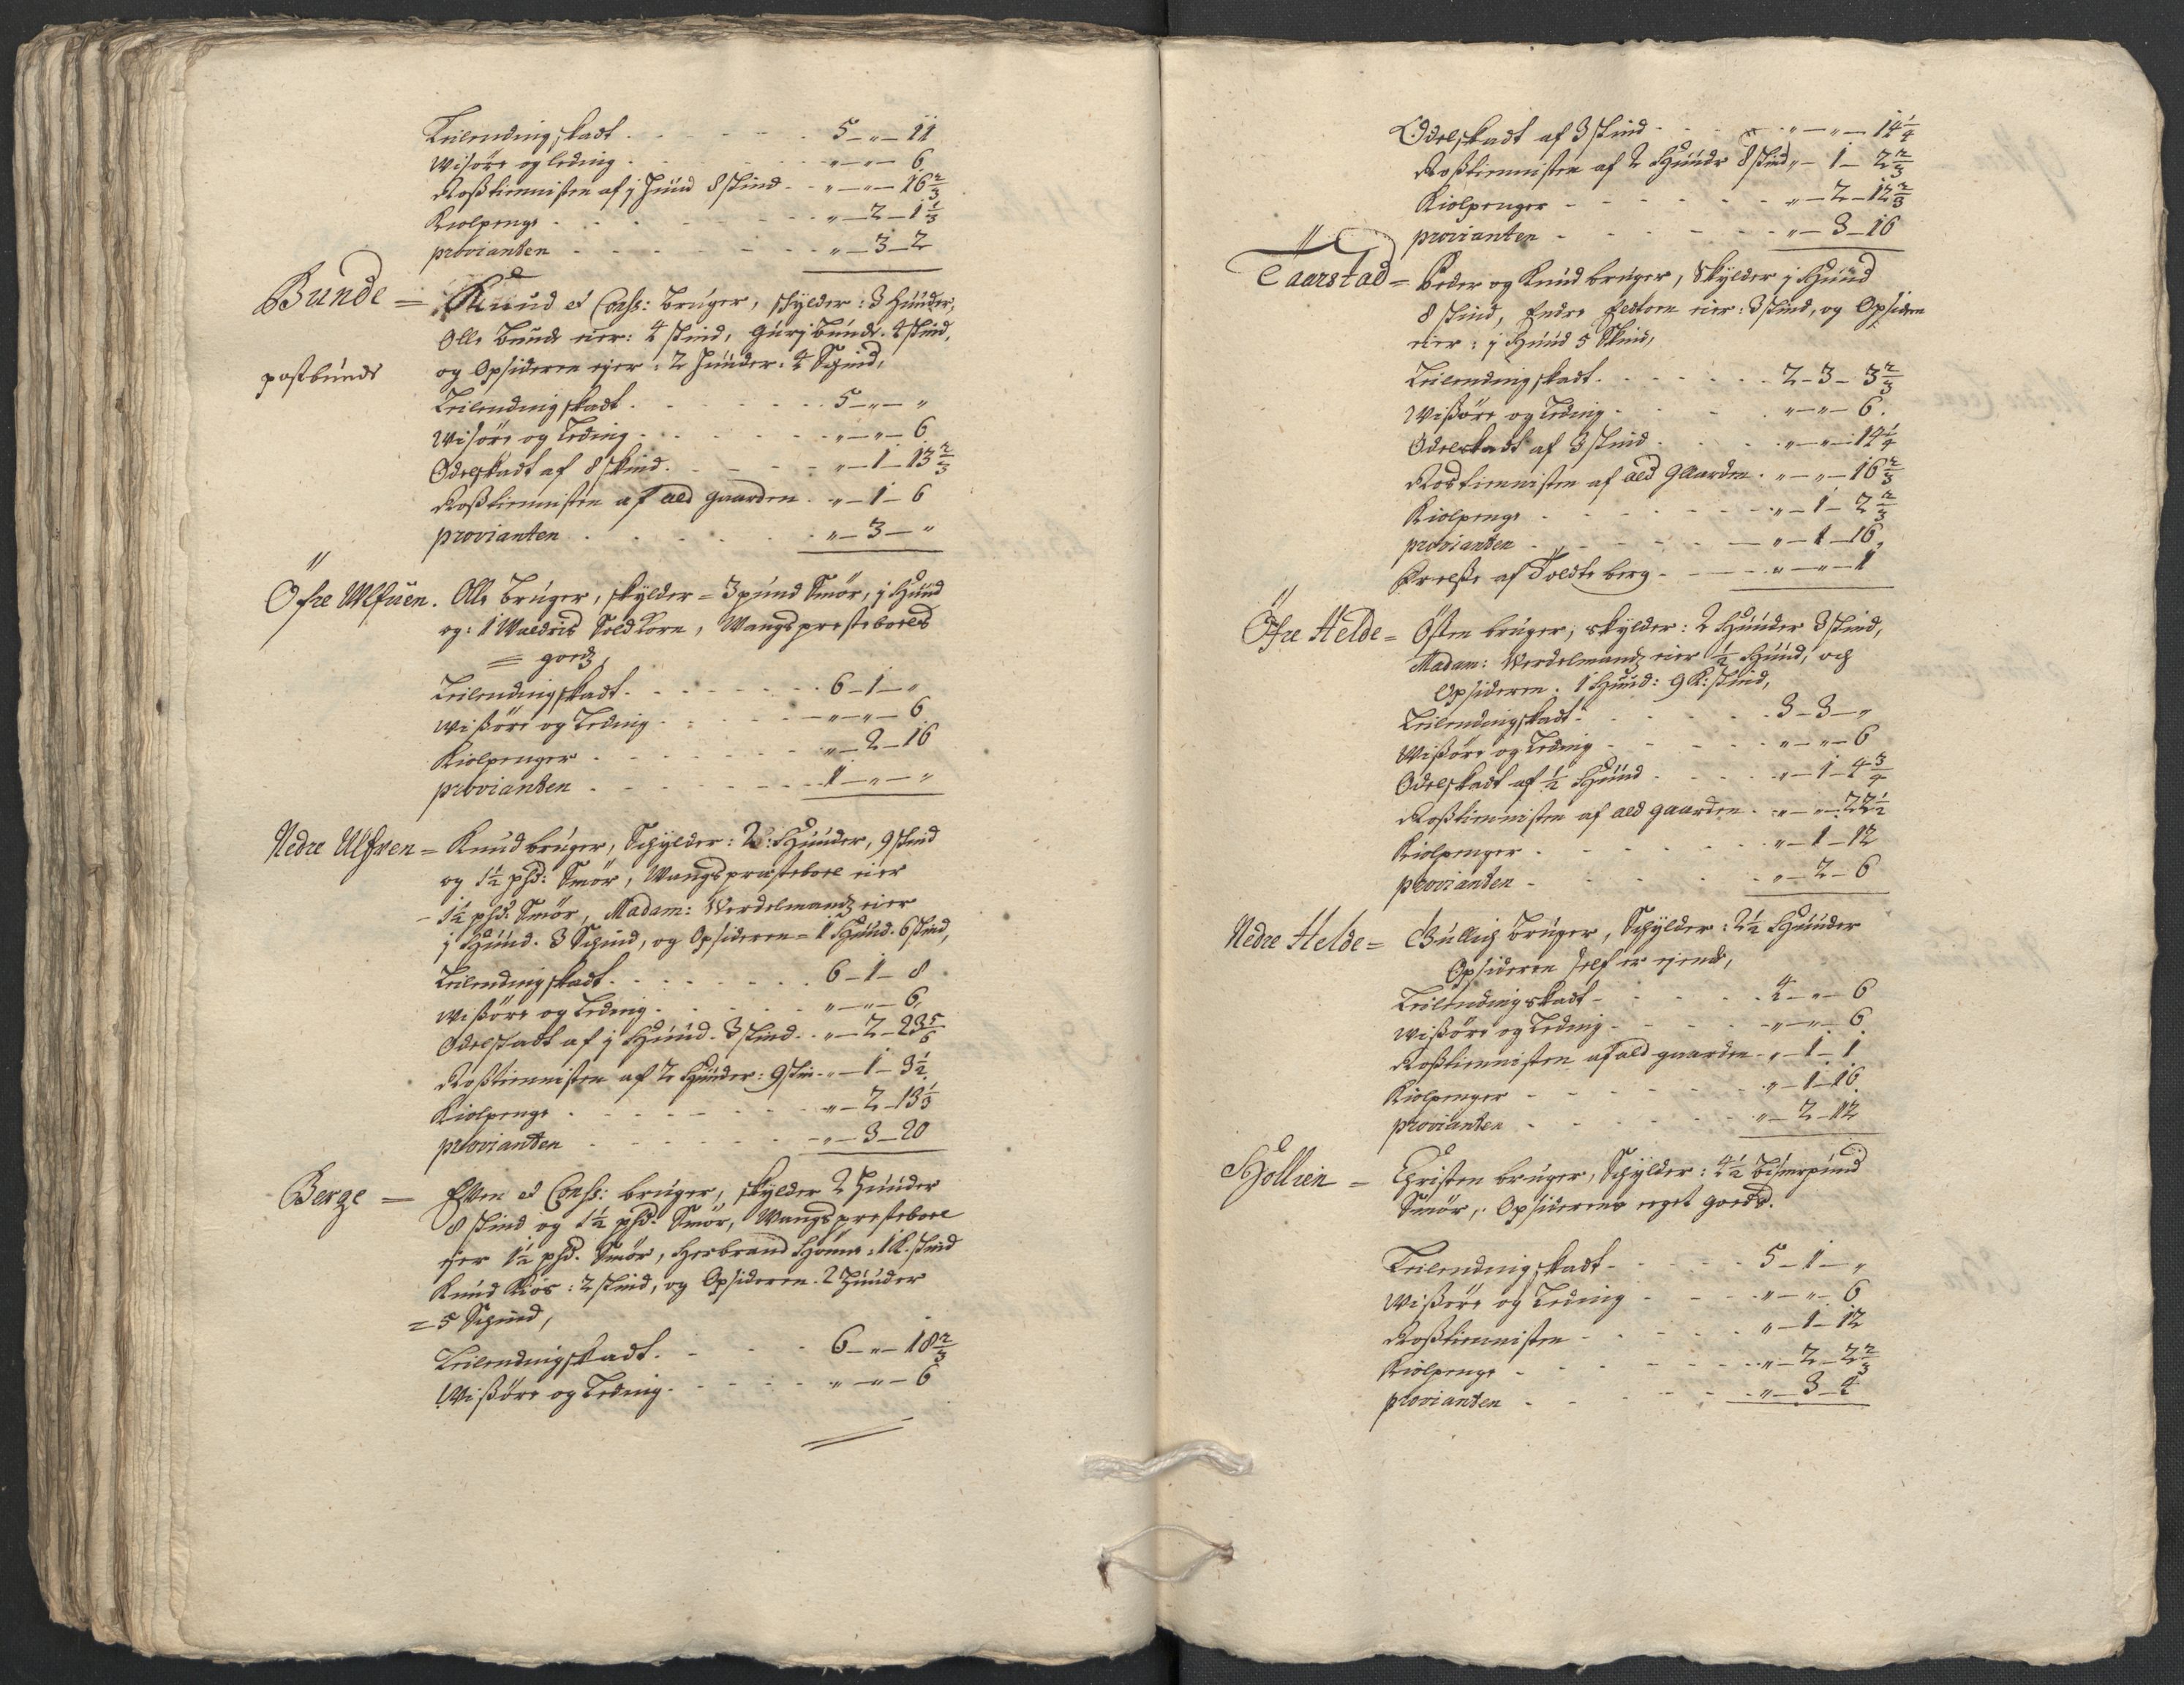 Leilendingskadt . . . 5 – „ – 11
Wisöre og leding . . . „ – „ – 6
Rosstiennisten af j Huud 8 skind . . „ – „ – 16 2/3
Kiolpenge . . . „ – 2 – 1 1/3
provianten . . . „ – 3 – 2
Bunde = Knud et Cons: bruger, skylder : 3 Huuder,
Olle Bunde eier : 4 skind, Gurj Bunde . 4 skind,
postbunde og Opsideren ejer : 2 Huuder : 4 Schind,
Leilendingskadt . . . 5 – „ – „
Wisöre og Leding . . . „ – „ – 6
Odelskadt af 8 skind . . . „ – 1 – 13 2/3
Rosstiennisten af ald gaarden . „ – 1 – 6
provianten . . . „ – 3 – „
Öfre Ulfuen . Olle bruger, skylder = 3 pund Smör, j Huud
og : 1 Waldris Soldkorn, Wangs prestebols
= godz,
Leilendingskadt . . . 6 – 1 – „
Wissöre og Leding . . . „ – „ – 6
Kiolpenger . . . „ – 2 – 16
provianten . . . 1 – „ – „
Nedre Ulfven = Knud bruger, Schylder : 2 : Huuder, 9 skind
og 1 1/2 phd: Smör, Wangs prestebole eier
– 1 1/2 phd: Smör, Madam: Werdelmandz eier
j Huud . 3 Schind, og Opsideren = 1 Huud . 6 skind,
Leilendingskadt . . . 6 – 1 – 8
Wissöre og Leding . . . „ – „ – 6,
Odelskadt af j Huud . 3 skind . . „ – 2 – 23 5/6
Rosstiennisten af 2 Huuder : 9 skin . „ – 1 – 3 1/2
Kiolpenge . . . „ – 2 – 13 1/3
provianten . . . „ – 3 – 20
Berge = Effen et Cons: bruger, skylder 2 Huuder
8 skind og 1 1/2 phd: Smör, Wangs prestebole
ejer 1 1/2 phd. Smör, Herbrand Hömme : 1 K. skind
Knud Kiös : 2 skind, og Opsideren . 2 Huuder
= 5 Schind,
Leilendingskadt . . . 6 – „ – 18 2/3
Wissöre og Leding . . . „ – „ – 6
Odelskadt af 3 skind . . . „ – „ – 14 1/4
Rosstiennisten af 2 Huude 8 skind „ – 1 – 2 2/3
Kiolpenger . . . „ – 2 – 12 2/3
provianten . . . „ – 3 – 16
Taarstad = Peder og Knud bruger, Skylder j Huud
8 skind, Endre eier : 3 skind, og Opsidren
eier : j Huud 5 Skind,
Leilendingskadt . . . 2 – 3 – 3 2/3
Wissöre og Leding . . . „ – „ – 6 .
Odelskadt af 3 skind . . . „ – „ – 14 1/4
Rostiennisten af ald Gaarden . „ – „ – 16 2/3
Kiolpenge . . . „ – 1 – 2 2/3
provianten . . . „ – 1 – 16,
Frelsse af Toldte berg . . „ – „ – 1
Öfre Helde = Östen bruger, skylder : 2 Huuder 3 skind,
Madam: Werdelmandz eier 1/2 Huud, och
Opsideren . 1 Huud : 9 K: skind,
Leilendingskadt . . . 3 – 3 – „
Wissöre og Leding . . . „ – „ – 6
Odelskadt af 1/2 Huud . . . „ – 1 – 4 3/4
Rosstiennisten af ald gaarden . „ – „ – 22 1/2
Kiolpenger . . . „ – 1 – 12
provianten . . . „ – 2 – 6
Nedre Helde = Gullich bruger, Schylder : 2 1/2 Huuder
Opsideren self er ejende,
Leilendingskadt . . . 4 – „ – 6
Wissöre og Leding . . . „ – „ – 6 .
Rosstiennisten af ald gaarden . „ – 1 – 1
Kiolpenger . . . „ – 1 – 16
provianten . . . „ – 2 – 12
Hollien = Christen bruger, Schylder : 4 1/2 bismerpund
Smör, Opsiderens eget goeds .
Leilendingskadt . . . 5 – 1 – „
Wissöre og Leding . . . „ – „ – 6
Rosstiennisten . . . „ – 1 – 12
Kiolpenge . . . „ – 2 – 2 2/3
provianten . . . „ – 3 – 4